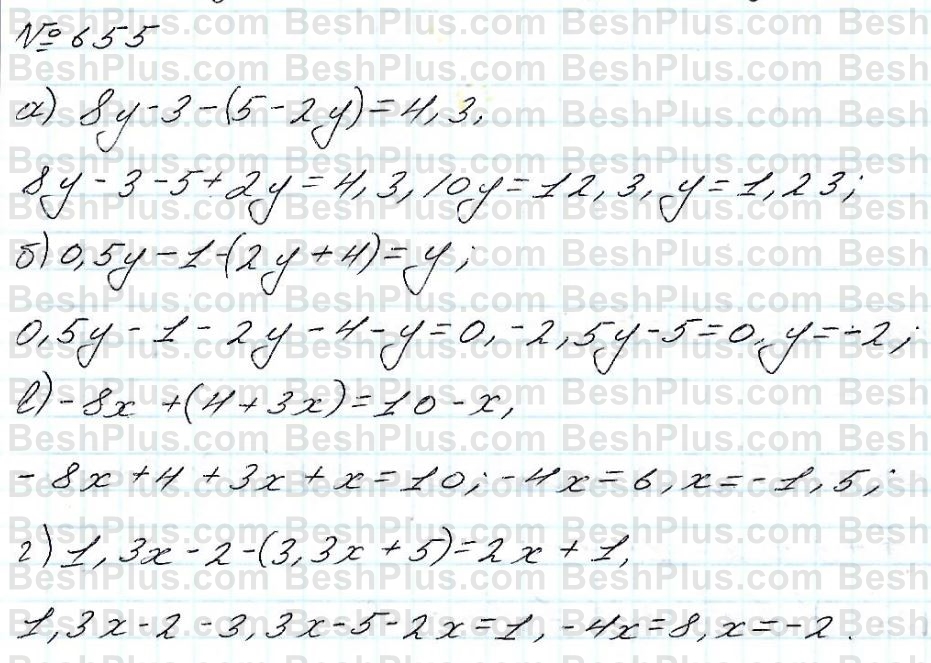 № 655
а) 8y - 3 - (5 - 2y) = 4,3,
8y - 3 - 5 + 2y = 4,3, 10y = 12,3, y = 1,23;
б) 0,5y - 1 - (2y + 4) = y;
0,5y - 1 - 2y - 4 - y = 0, -2,5y - 5 = 0, y = -2;
в) -8x + (4 + 3x) = 10 - x,
-8x + 4 + 3x + x = 10; -4x = 6, x = -1,5;
г) 1,3x - 2 - (3,3x + 5) = 2x + 1,
1,3x - 2 - 3,3x - 5 - 2x = 1, -4x = 8, x = -2.
BeshPlus.com